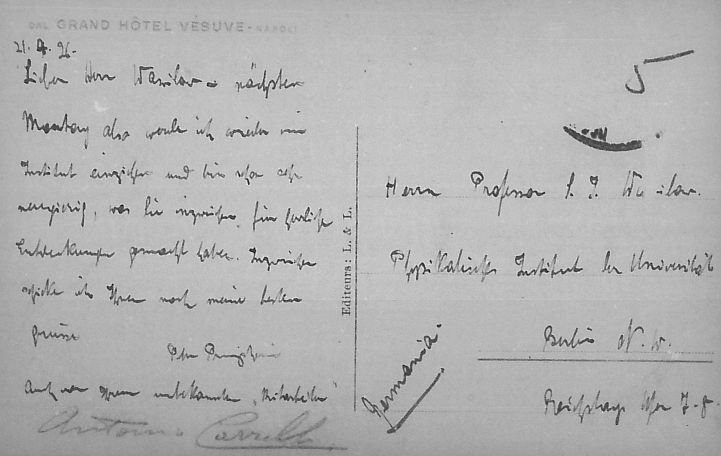 DAL GRAND HÔTEL VÉSUVE - NAPOLI
21. 4. 26.
Lieber Herr Wawilow – nächsten
Montag also werde ich wieder im
Institut einziehen und bin schon sehr
neugierig, was Sie inzwischen für herrliche
Entdeckungen gemacht haben. Inzwischen
schicke ich Ihnen noch meine besten
Grüsse
Peter Pringsheim
Auch von Ihrem unbekannten „Mitarbeiter"
Antonio Carrelli
Editeurs: L. & L.
5
Herrn Professor S. J. Wawilow.
Physikalisches Institut der Universität
Berlin N. W.
Reichstags Ufer 7-8.
Germania.